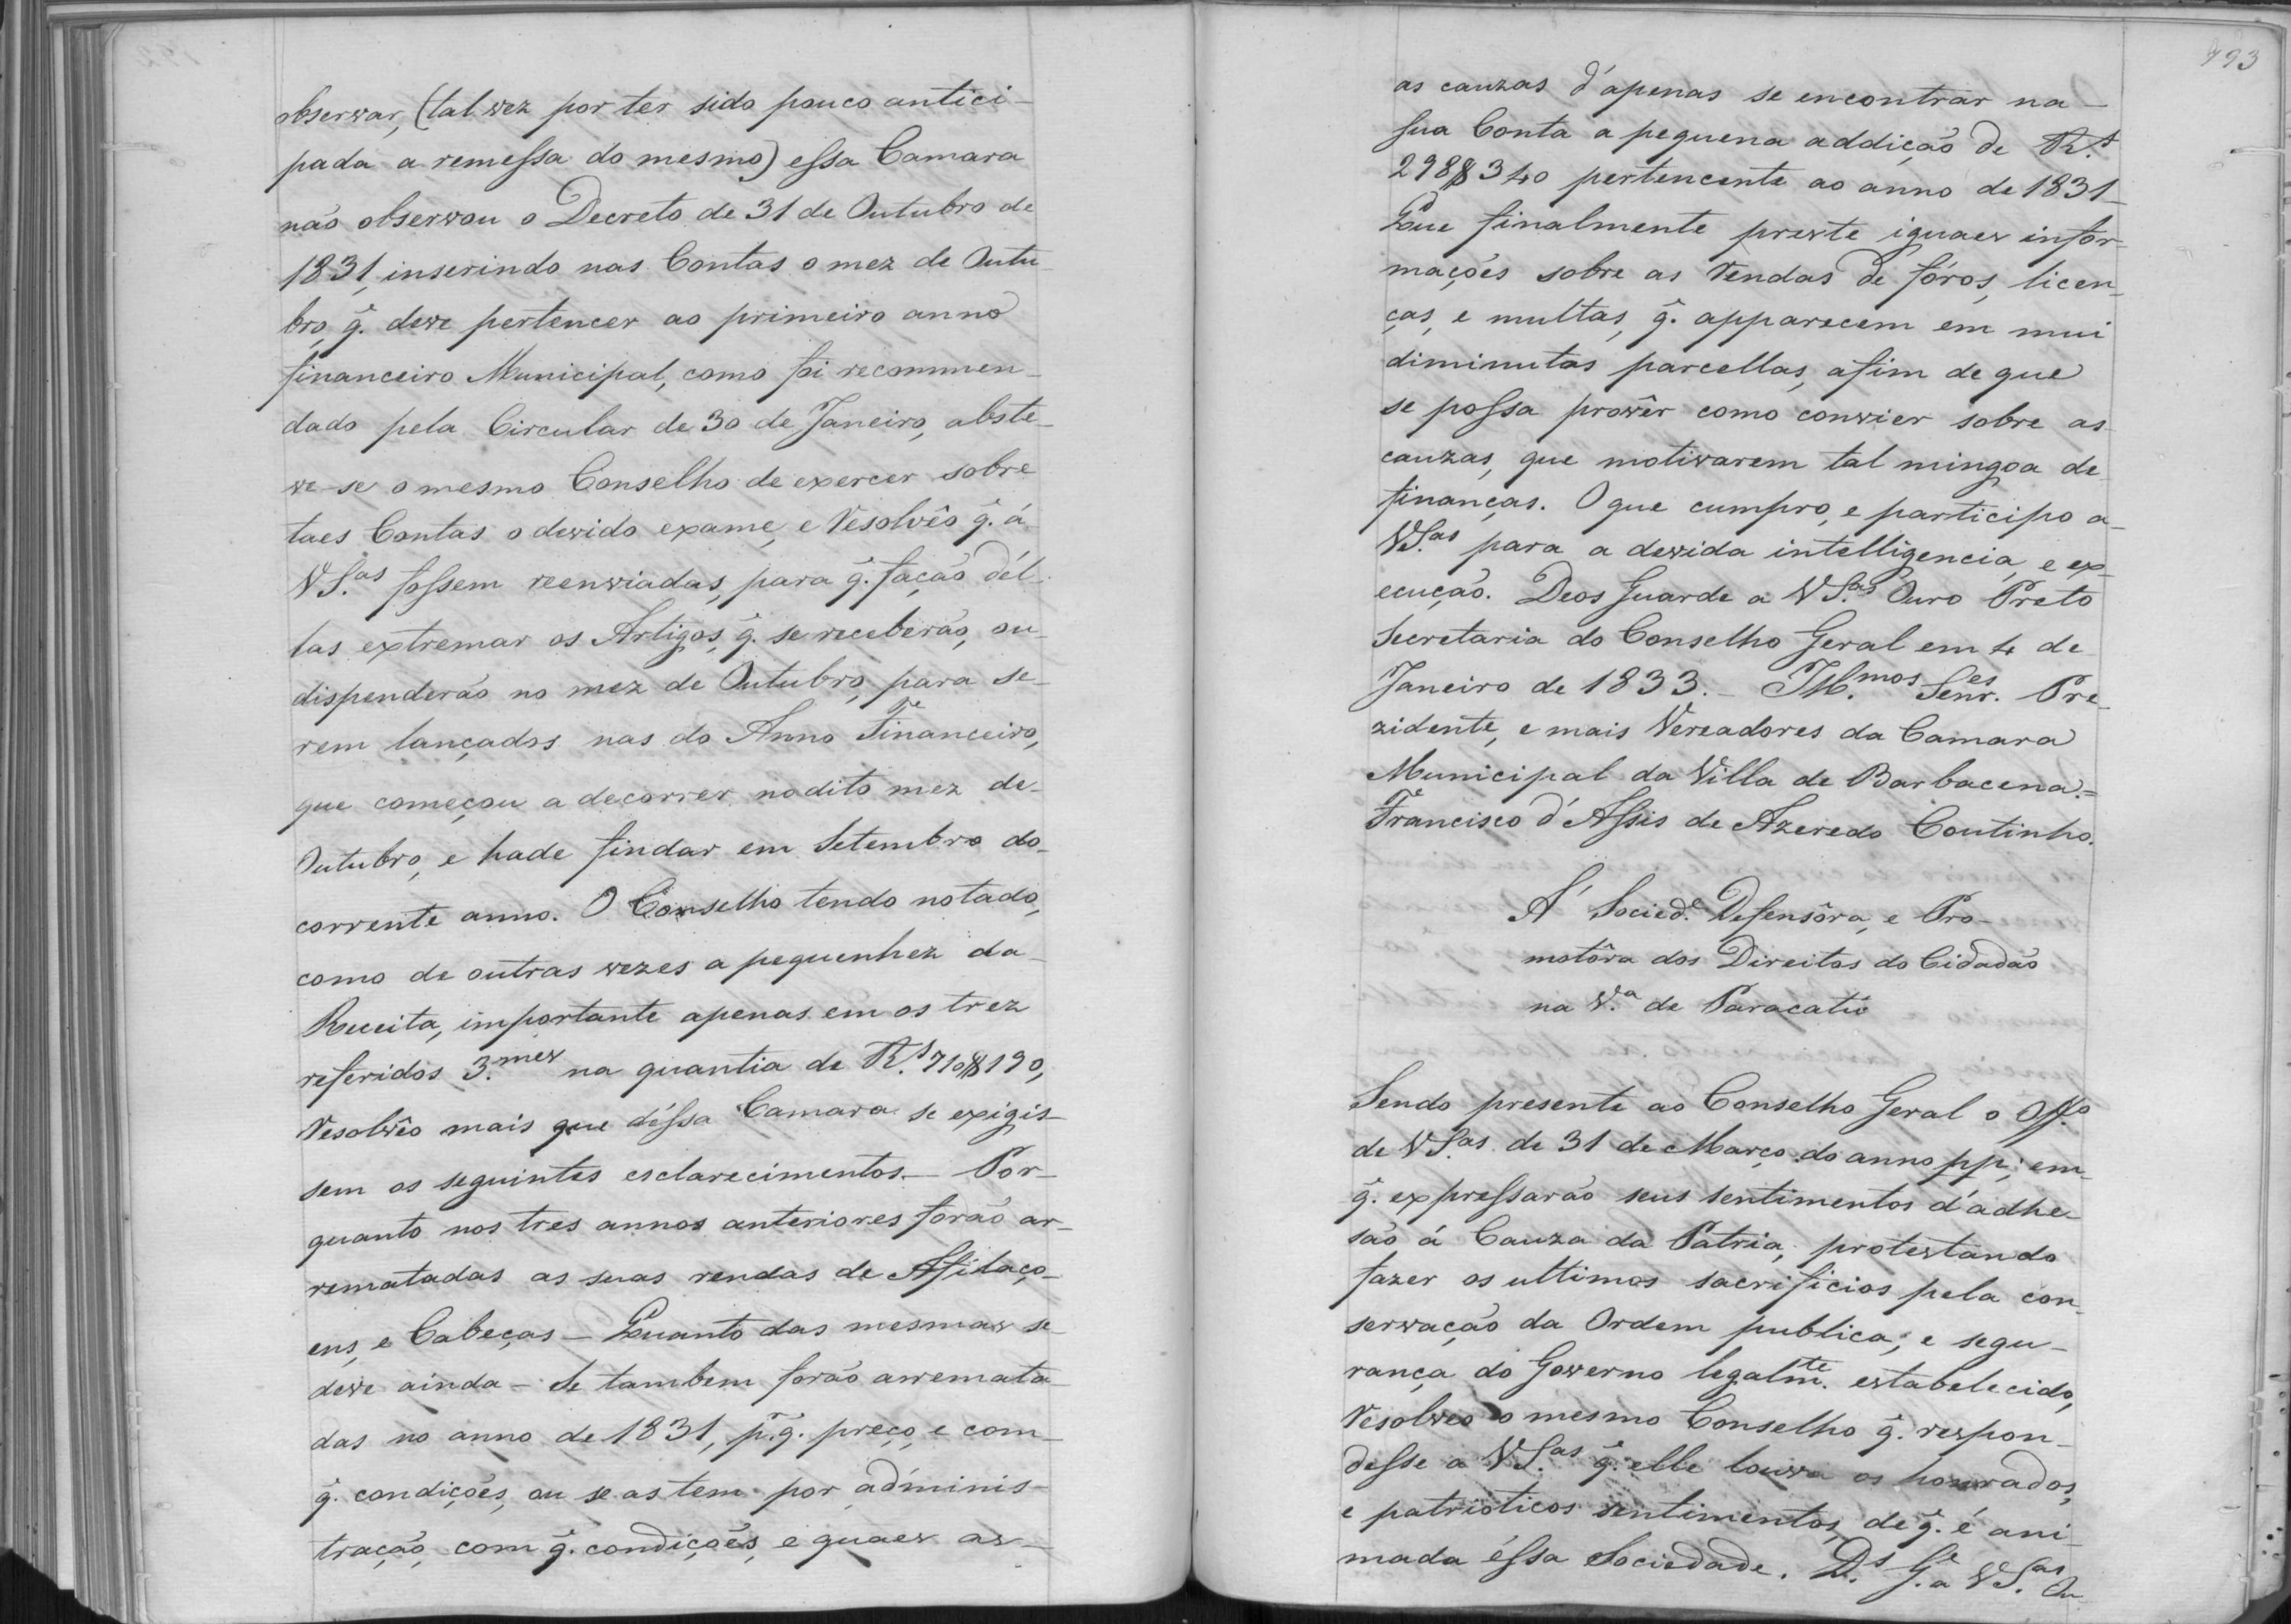 observar, (tal vez por ter sido pouco antici-
pada a remessa do mesmo) essa Camara
não observou o Decreto de 31 de Outubro de
1831, inserindo nas Contas o mez de Outu-
bro, q̃. deve pertencer ao primeiro anno
financeiro Municipal, como foi recommen-
dado pela Circular de 30 de Janeiro, abste-
ve-se o mesmo Conselho de exercer sobre
taes Contas o devido exame, e Resolvêo q̃. á
VS.as fossem reenviadas, para q̃. fação dél-
las extremar os Artigos, q̃. se receberão, ou
dispenderão no mez de Outubro, para se-
rem lançados nas do Anno Financeiro,
que começou a decorrer no dito mez de
Outubro, e hade findar em Setembro do
corrente anno. O Conselho tendo notado,
como de outras vezes a pequenhez da
Receita, importante apenas em os trez
referidos 3.mes na quantia de R.s 710$190,
Resolvêo mais que déssa Camara se exigis-
sem os seguintes esclarecimentos. — Por-
quanto nos tres annos anteriores forão ar-
rematadas as suas rendas de Afilaço-
ens, e Cabeças — Quanto das mesmas se
deve ainda — Se tambem forão arremata-
das no anno de 1831, p.r q̃. preço, e com
q̃. condições, ou se as tem por adminis-
tração, com q̃. condições, e quaes as
993
as cauzas d'apenas se encontrar na
sua Conta a pequena addição de R.s
298$340 pertencente ao anno de 1831_
Que finalmente preste iguaes infor-
mações sobre as Rendas de fóros, licen-
ças, e multas, q̃. apparecem em mui
diminutas parcellas, afim de que
se possa provêr como convier sobre as
cauzas, que motivarem tal mingoa de
finanças. O que cumpro, e participo a
VS.as para a devida intelligencia, e ex-
ecução. Deos Guarde a VS.as Ouro Preto
Secretaria do Conselho Geral em 4 de
Janeiro de 1833. — Ill.mos Senr.es Pre-
zidente, e mais Vereadores da Camara
Municipal da Villa de Barbacena. =
Francisco d'Assis de Azeredo Coutinho.
Á Socied.e Defensôra, e Pro-
motôra dos Direitos do Cidadão
na V.a de Paracatú
Sendo presente ao Conselho Geral o Off.o
de VS.as de 31 de Março do anno pp; em
q̃. expressarão seus sentimentos d'adhe-
são á Cauza da Patria, protestando
fazer os ultimos sacrificios pela con-
servação da Ordem publica, e segu-
rança do Governo legalm.te estabelecido,
Resolveo o mesmo Conselho q̃. respon-
desse a VS.as q̃. elle louva os honrados,
e patrióticos sentimentos, de q̃. é ani-
mada éssa Sociedade. D.s G.e a VS.as Ou